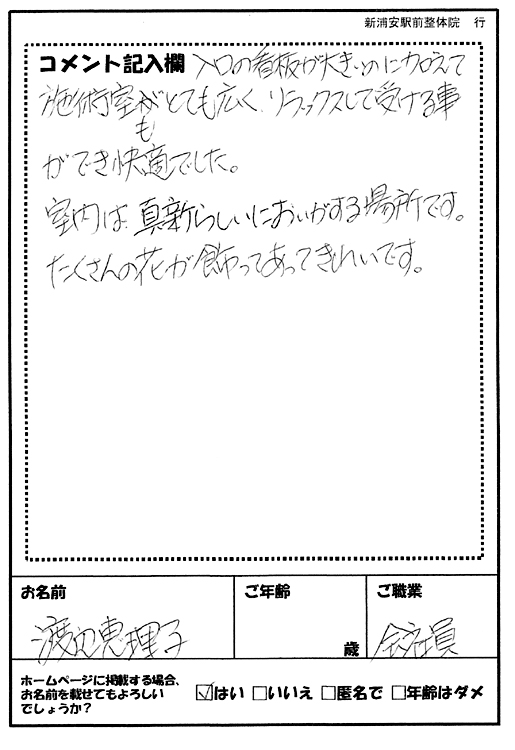 新浦安駅前整体院 行
コメント記入欄 入口の看板が大きいのに加えて
施術室がとても広く、リラックスして受ける事
も
ができ快適でした。
室内は真新らしいにおいがする場所です。
たくさんの花が飾ってあってきれいです。
お名前 ご年齢 ご職業
渡辺恵理子 歳 会社員
ホームページに掲載する場合、
お名前を載せてもよろしい
でしょうか？
☑はい □いいえ □匿名で □年齢はダメ